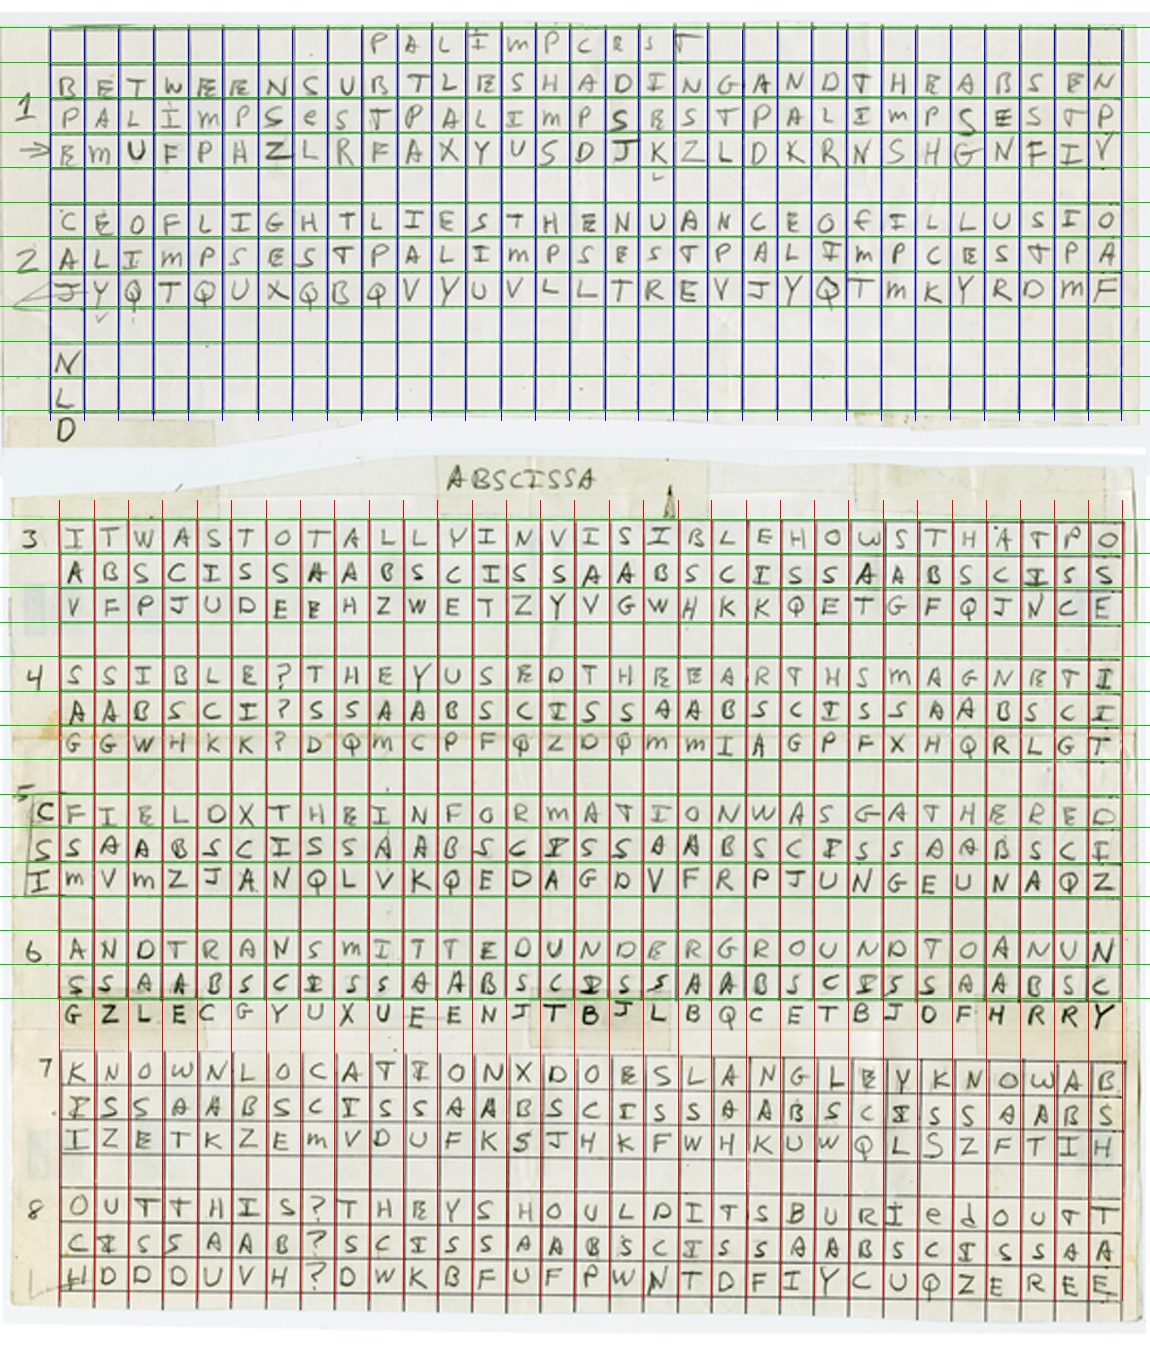 P A L I m P C E S T
B E T W E E N S U B T L E S H A D I N G A N D T H E A B S E N
1 P A L I m P S e S T P A L I m P S E S T P A L I m P S E S T P
→ E m U F P H Z L R F A X Y U S D J K Z L D K R N S H G N F I V
C E O F L I G H T L I E S T H E N U A N C E O f I L L U S I O
2 A L I m P S E S T P A L I m P S E S T P A L I m P C E S T P A
J Y Q T Q U X Q B Q V Y U V L L T R E V J Y Q T m K Y R D m F
N
L
D
ABSCISSA
3 I T W A S T O T A L L Y I N V I S I B L E H O W S T H A T P O
A B S C I S S A A B S C I S S A A B S C I S S A A B S C I S S
V F P J U D E E H Z W E T Z Y V G W H K K Q E T G F Q J N C E
4 S S I B L E ? T H E Y U S E D T H E E A R T H S m A G N E T I
A A B S C I ? S S A A B S C I S S A A B S C I S S A A B S C I
G G W H K K ? D Q m C P F Q Z D Q m m I A G P F X H Q R L G T
5 C F I E L D X T H E I N F O R m A T I O N W A S G A T H E R E D
S S A A B S C I S S A A B S C I S S A A B S C I S S A A B S C I
I m V m Z J A N Q L V K Q E D A G D V F R P J U N G E U N A Q Z
6 A N D T R A N S m I T T E D U N D E R G R O U N D T O A N U N
S S A A B S C I S S A A B S C I S S A A B S C I S S A A B S C
G Z L E C G Y U X U E E N J T B J L B Q C E T B J D F H R R Y
7 K N O W N L O C A T I O N X D O E S L A N G L E Y K N O W A B
I S S A A B S C I S S A A B S C I S S A A B S C I S S A A B S
I Z E T K Z E m V D U F K S J H K F W H K U W Q L S Z F T I H
8 O U T T H I S ? T H E Y S H O U L D I T S B U R I e d O U T T
C I S S A A B ? S C I S S A A B S C I S S A A B S C I S S A A
H D D D U V H ? D W K B F U F P W N T D F I Y C U Q Z E R E E